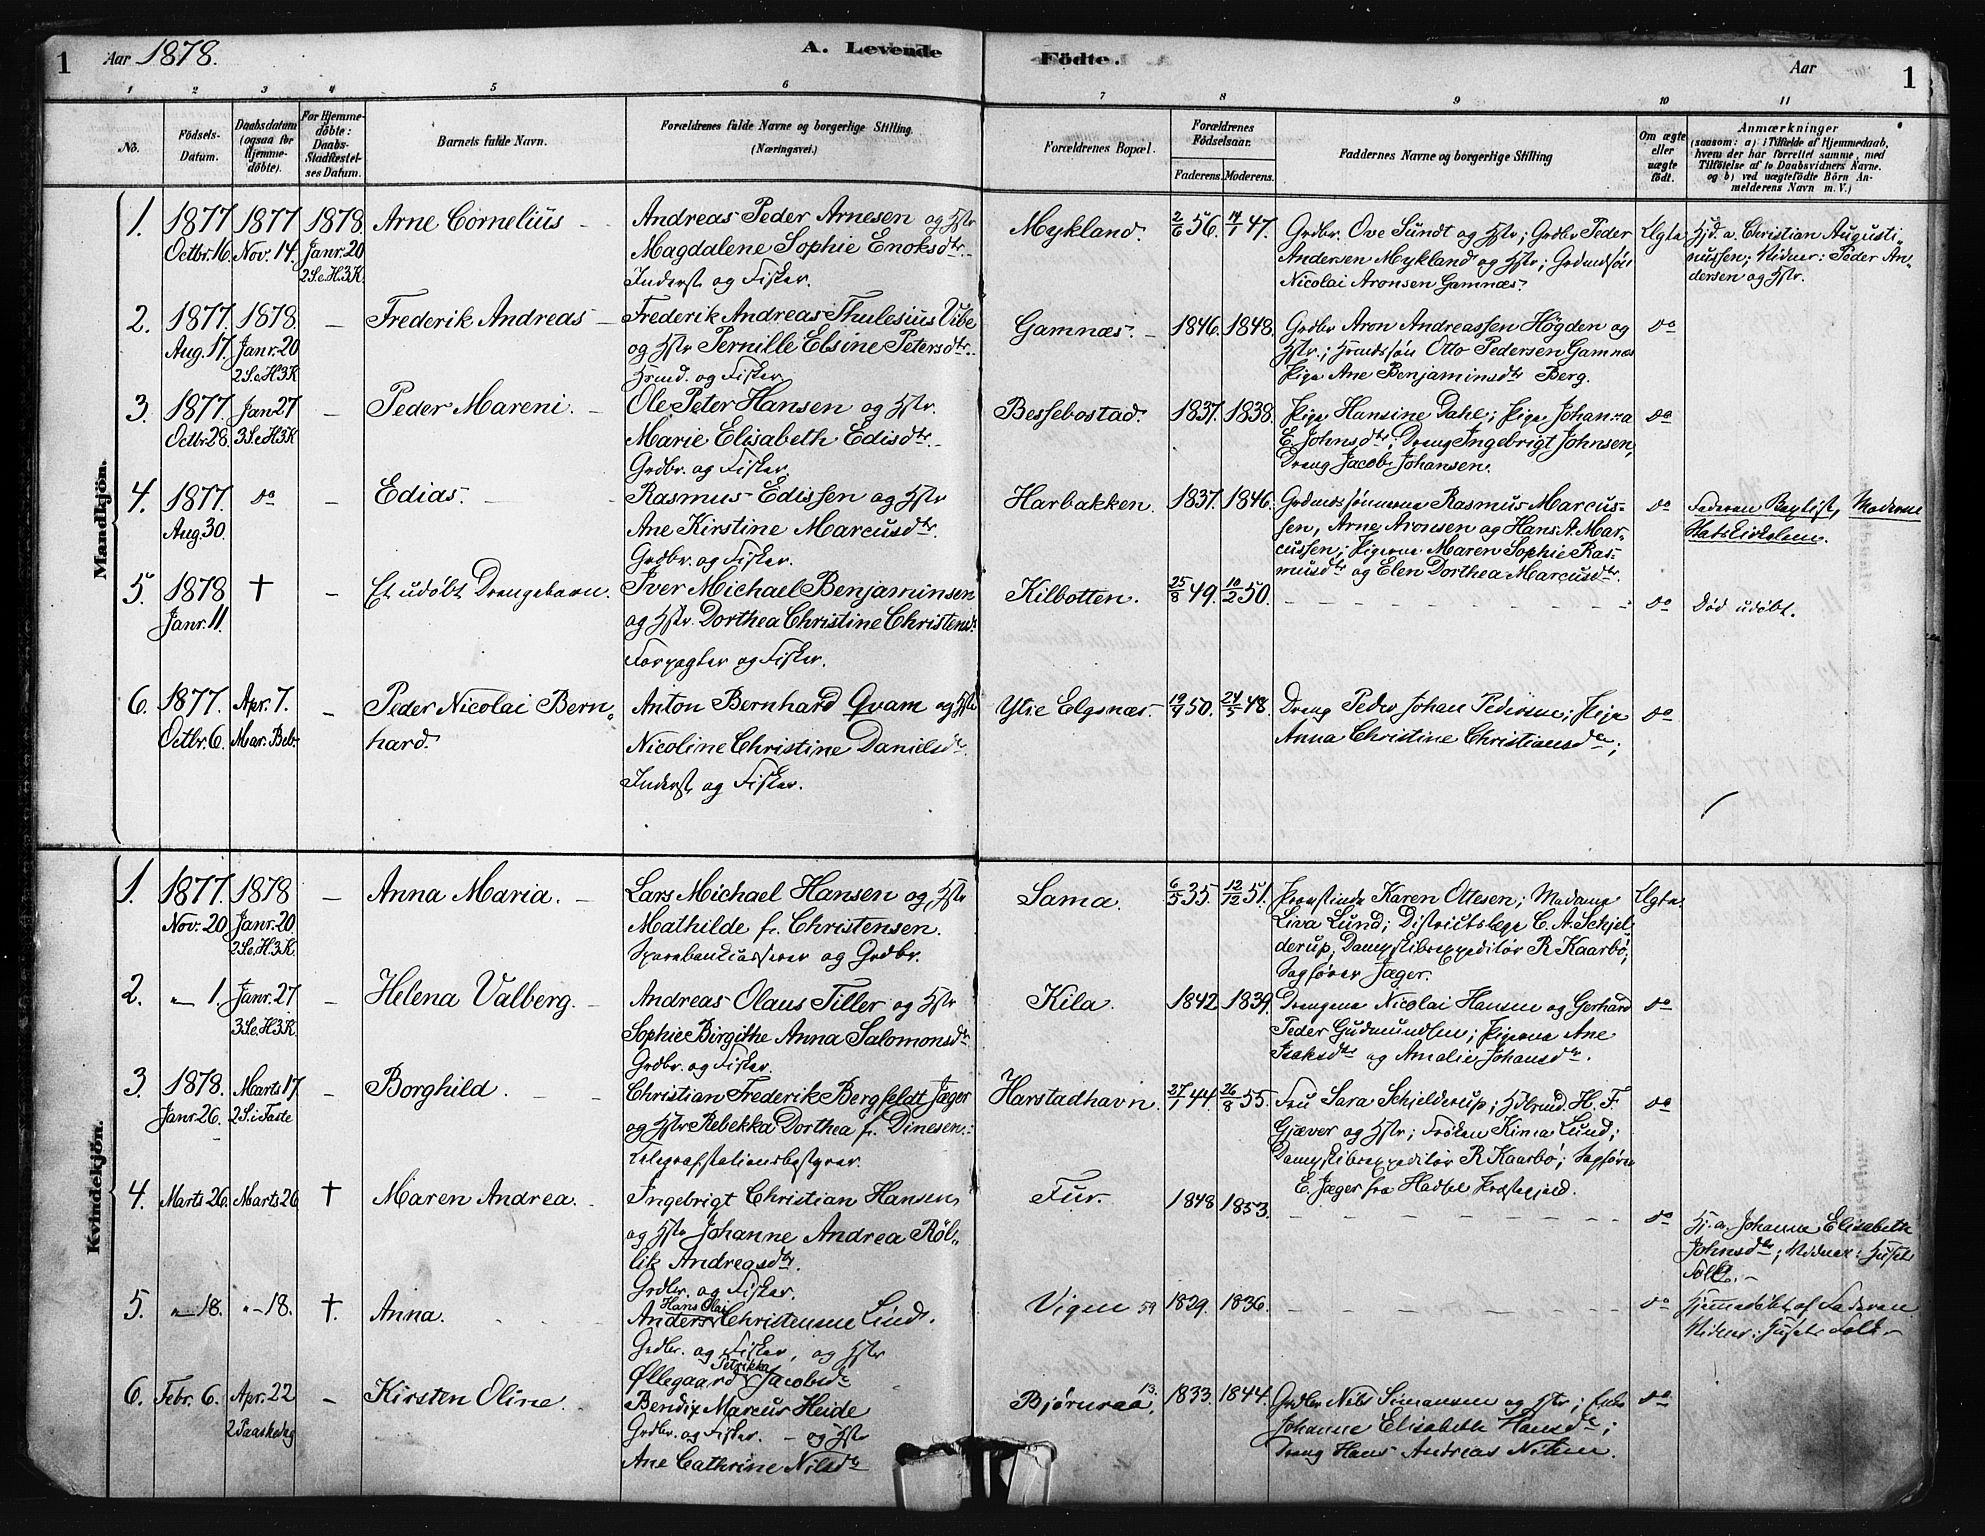 1 Aar 1878. A. Levende Födte. Aar 1
1 2 3 4 5 6 7 8 9 10 11
No. Födsels-Datum. Daabsdatum (ogsaa for Hjemme-döbte). For Hjemme-döbte: Daabs-Stadfæstel-ses Datum. Barnets fulde Navn. Forældrenes fulde Navne og borgerlige Stilling. (Næringsvei.) Forældrenes Bopæl. Forældrenes Födselsaar. Faderens. Moderens. Faddernes Navne og borgerlige Stilling Om ægte eller uægte födt. Anmærkninger (saasom: a) i Tilfælde af Hjemmedaab, hvem der har forrettet samme, med Tilföielse af to Daabsvidners Navne. og b) ved uægtefödte Börn An-melderens Navn m. V.)
Mandkjön.
1. 1877 1877 1878. Arne Cornelius Andreas Peder Arnesen og Hstr Mykland. 2/6 56. 14/1 47. Grdbr. Ove Sundt og Hstr; Grdbr Peder Ægte Hjd. a. Christian Augusti-
Octbr. 16. Nov. 14. Janr. 20 Magdalene Sophie Enoksdtr. Andersen Mykland og Hstr; Grdmdsön nussen; Vidner: Peder An-
2 S. e. H.3K. Inderst og Fisker. Nicolai Aronsen Gamnæs. dersen og Hstr.
2. 1877. 1878. – Frederik Andreas – Frederik Andreas Thulesius Vibe Gamnæs. – 1846. 1848. Grdbr Aron Andreassen Högden og do
Aug. 17. Janr. 20 og Hstr Pernille Elsine Petersdtr. Hstr.; Hmdssön Otto Pedersen Gamnæs
2 S. e. H.3K Hmd. og Fisker. Pige Ane Benjaminsdtr Berg.
3. 1877. Jan 27 – Peder Mareni. – Ole Peter Hansen og Hstr. Bessebostad. 1837. 1838. Pige Hansine Dahl; Pige Johanna do
Octbr 28. 3 S. e. H.3K Marie Elisabeth Edisdtr. E. Johnsdtr; Dreng Ingebrigt Johnsen,
Grdbr. og Fisker. Dreng Jacob Johansen.
4. 1877. do – Edias. – Rasmus Edissen og Hstr Harbakken. 1837. 1846. Grdmdssönnerne Rasmus Marcus- do Faderen Baptist, Moderen
Aug. 30. Ane Kirstine Marcusdtr. sen, Arne Aronsen og Hans A. Mar- Statskirkelem.
Grdbr. og Fisker. cussen; Pigerne Maren Sophie Ras-
musdtr og Elen Dorthea Marcusdtr.
5. 1878 † – Et udöbt Drengebarn. Iver Michael Benjaminsen Kilbotten. 25/8 49. 10/2 50. – – – do Död udöbt.
Janr. 11. og Hstr. Dorthea Christine Christensd.
Forpagter og Fisker.
6. 1877. Apr. 7. – Peder Nicolai Bern- Anton Bernhard Qvam og Hstr Ytre Elgsnæs. 19/9 50. 24/5 48. Dreng Peder Johan Pedersen; Pige do
Octbr. 6. Mar. Beb. hard. Nicoline Christine Danielsdtr. Anna Christine Christiansdtr;
Inderst og Fisker.
Kvindekjön.
1. 1877. 1878 – Anna Maria. – Lars Michael Hansen og Hstr Sama. 6/5 35. 12/12 51. Provstinde Karen Ottesen; Madame Ægte.
Nov. 20 Janr. 20. Mathilde f. Christensen. Liva Lund; Districtslæge C. A. Schjel-
2 S. e. H.3K. Sparebankkasserer og Grdbr. derup; Dampskibsexpeditör R Kaarbö;
Sagförer Jæger.
2. " 1. Janr. 27 – Helena Valberg. – Andreas Olaus Tiller og Hstr Kila. 1842 1839. Drengene Nicolai Hansen og Gerhard do
3 S. e. H.3K. Sophie Birgithe Anna Salomonsdtr. Peder Gudmundsen; Pigerne Ane
Grdbr. og Fisker. Isaksdtr og Amalie Johansdtr.
3. 1878. Marts 17 – Borghild. – Christian Frederik Bergfeldt Jæger Harstadhavn. 27/7 44. 26/8 55. Fru Sara Schjelderup; Hdlsmd. H. F. do
Janr. 26. 2 S. i Faste og Hstr Rebekka Dorthea f. Dinesen. Gjæver og Hstr; Fröken Kima Lund;
Telegrafstationsbestyrer. Dampskibsexpeditör R Kaarbö; Sagförer
E. Jæger fra Hadsel Præstegjeld.
4. Marts 26. Marts 26 † Maren Andrea. – Ingebrigt Christian Hansen, Fur. 1848 1853. – – – do Hj. a. Johanne Elisabeth
og Hstr Johanne Andrea Röl- Johnsdtr; Vidner: Husets
lik Andreasdtr. Folk. –
Grdbr. og Fisker.
5. " 18. " 18. †. Anna. Anders Hans Olai Christensen Lind. Vigen 59 1829. 1836. – – – do Hjemmedöbt af Faderen
Grdbr. og Fisker, og Hstr Vidner: Husets Folk –
Øllegaard Petrikka Jacobsdtr
6. Febr. 6. Apr. 22 – Kirsten Oline. Bendix Marcus Heide Bjørnraa. 13. 1833. 1844. Grdbr Nils Simonsen og Hstr; Enke do
2 Paaskedag Grdbr. og Fisker. – og Hstr Johanne Elisabeth Hansdtr;
Ane Cathrine Nilsdtr Dreng Hans Andreas Nilsen.